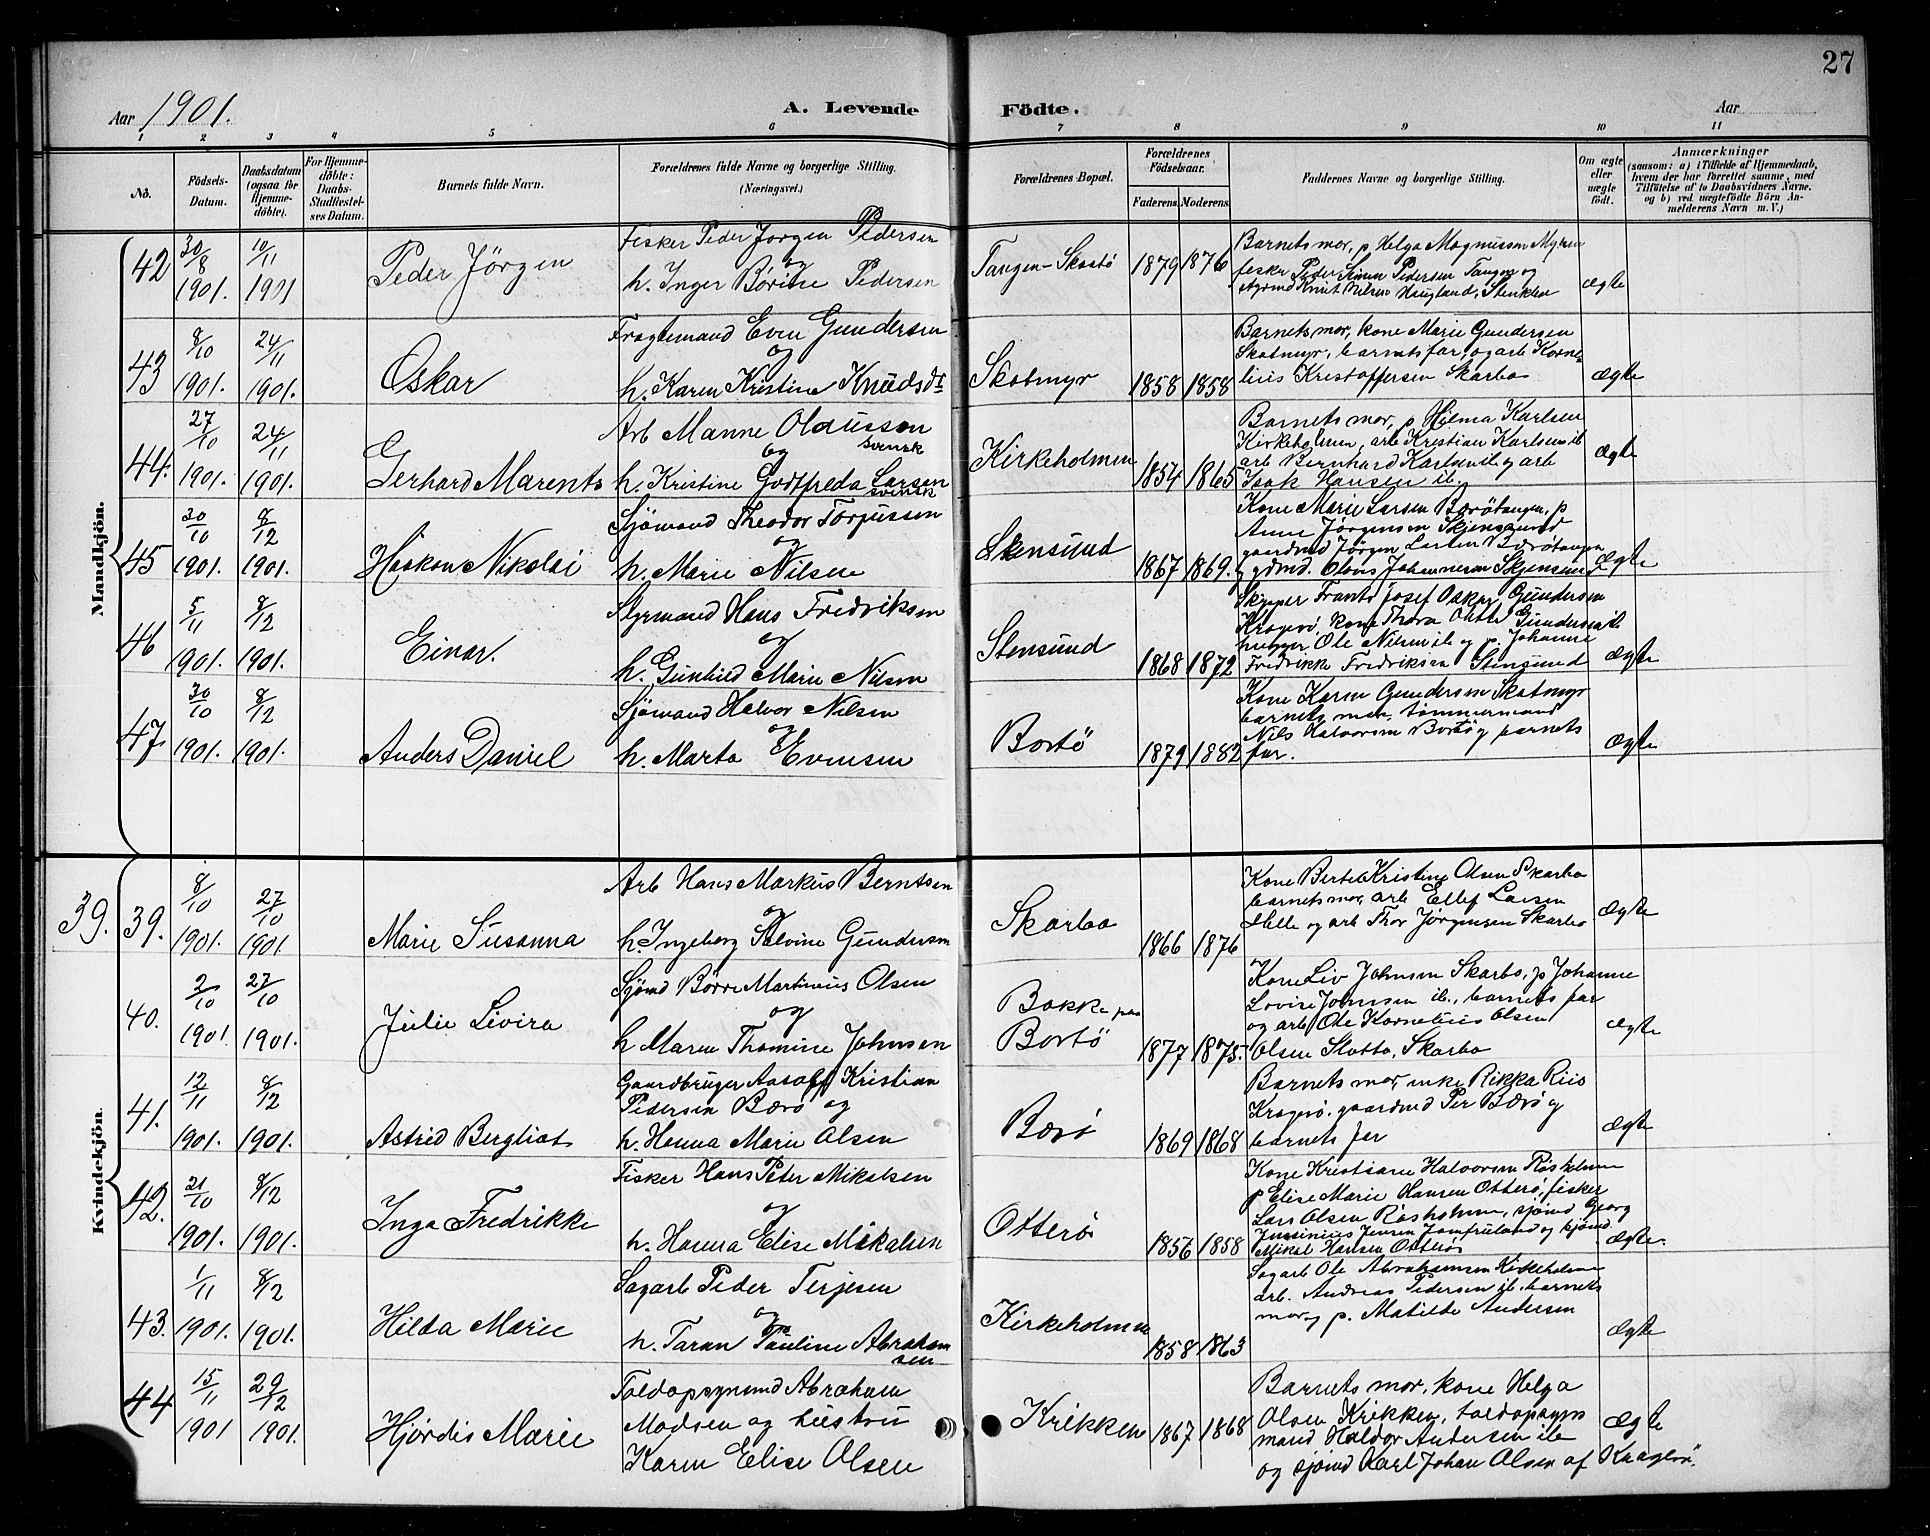 27
Aar 1901.
A. Levende
Födte.
Aar
1 2 3 4 5 6 7 8 9 10 11
No.
Födsels-
Datum.
Daabsdatum
(ogsaa for
Hjemme-
döbte).
For Hjemme-
döbte:
Daabs-
Stadfæstel-
ses Datum.
Barnets fulde Navn.
Forældrenes fulde Navne og borgerlige Stilling.
(Næringsvei.)
Forældrenes Bopæl.
Forældrenes
Födselsaar.
Faderens. Moderens.
Faddernes Navne og borgerlige Stilling.
Om ægte
eller
uægte
födt.
Anmærkninger
(saasom: a) i Tilfælde af Hjemmedaab,
hvem der har forrettet samme, med
Tilföielse af to Daabsvidners Navne,
og b) ved uægtefödte Börn An-
melderens Navn m. V.)
Mandkjön.
42
30/8
1901.
10/11
1901
Peder Jörgen
Fisker Peder Jørgen Pedersen
og
h. Inger Børine Pedersen
Tangen-Skåtø
1879 1876
Barnets mor, p Helga Magnussen Myren
fisker Peder Simon Pedersen Tangen og
styrmd Knut Nilsen Haugland, Stenklev
ægte
43
8/10
1901.
24/11
1901.
Oskar
Fragtemand Even Gundersen
og
h. Karen Kristine Knudsdt
Skotmyr
1858 1858
Barnets mor, kone Marie Gundersen
Skotmyr, barnets far, og arb Korne-
lius Kristoffersen Skarbo
ægte
44.
27/10
1901.
24/11
1901.
Gerhard Marents
Arb Manne Olausson
og svensk
h. Kristine Godtfreda Larsen
svensk
Kirkeholmen
1854 1865
Barnets mor, p Hilma Karlsen
Kirkeholmen, arb Kristian Karlsen ib
arb Bernhard Karlsen ib og arb
Isak Hansen ib.
ægte
45
30/10
1901.
8/12
1901.
Haakon Nikolai
Sjömand Theodor Torjussen
og
h. Marie Nilsen
Stensund
1867 1869.
Kone Marie Larsen Bærøtangen, p
Anne Jørgensen Skjensund
gaardmd Jørgen Larsen Bærøtangen
og gdmd. Olavis Johannesen Skjensund
ægte
46
5/11
1901.
8/12
1901.
Einar.
Styrmand Hans Fredriksen
og
h. Gunhild Marie Nilsen
Stensund
1868 1872
Skipper Frants Josef Oskar Gundersen
Kragerø, kone Thora Gundersen ib
Ole Nilsen ib og p. Johanne
Fredrikke Fredriksen Stensund
ægte
47
30/10
1901.
8/12
1901.
Anders Daniel
Sjömand Halvor Nilsen
og
h. Marta Evensen
Bortø
1879 1882
Kone Karen Gundersen Skotmyr
barnets mor, tømmermand
Nils Halvorsen Bortø og barnets
far.
ægte
Kvindekjön.
39.
39.
8/10
1901.
27/10
1901
Marie Susanna
Arb Hans Markus Berntsen
og
h. Ingeborg Salvine Gundersen
Skarbo
1866 1876
Kone Berte Kristine Olsen Skarbo
barnets mor, arb Ellef Larsen
Helle og arb Thor Jørgensen Skarbo
ægte
40.
2/10
1901.
27/10
1901.
Julie Livira
Sjömd Börre Martinius Olsen
og
h Maren Thomine Johnsen
Bakke paa
Bortø
1877 1875.
Kone Liv Johnsen Skarbo, p Johanne
Lovise Johnsen ib., barnets far
og arb Ole Kornelius Olsen
Olsen Slotta, Skarbo
ægte
41.
12/11
1901.
8/12
1901.
Astrid Bergliot
Gaardbruger Aasolf Kristian
Pedersen Bærø og
h. Hanna Marie Olsen
Bærø
1869 1868
Barnets mor, enke Rikka Riis
Kragerø, gaardmd Per Bærø og
barnets far
ægte
42.
21/10
1901.
8/12
1901.
Inga Fredrikke
Fisker Hans Peter Mikalsen
og
h. Hanna Elise Mikalsen
Otterø
1856 1858
Kone Kristiane Halvorsen Røsholmen
p Elise Marie Hansen Otterø, fisker
Lars Olsen Røsholmen, sjömd Georg
Jensen Jomfruland og sjömd
Mikal Hansen Otterø
ægte.
43.
1/11
1901.
8/12
1901.
Hilda Marie
Sagarb Peder Terjesen
og
h. Taran Pauline Abraham
sen
Kirkeholmen
1858 1863
Sagarb Ole Abrahamsen Kirkeholmen
arb. Andreas Pedersen ib. barnets
mor og p. Matilde Andersen
ægte
44
15/11
1901
29/12
1901.
Hjørdis Marie
Toldopsynsmd Abraham
Madsen og hustru
Karen Elise Olsen
Krikken
1867 1868
Barnets mor, kone Helga
Olsen Krikken, toldopsyns
mand Haldor Andersen ib
og sjömd Karl Johan Olsen af Kragerø.
ægte